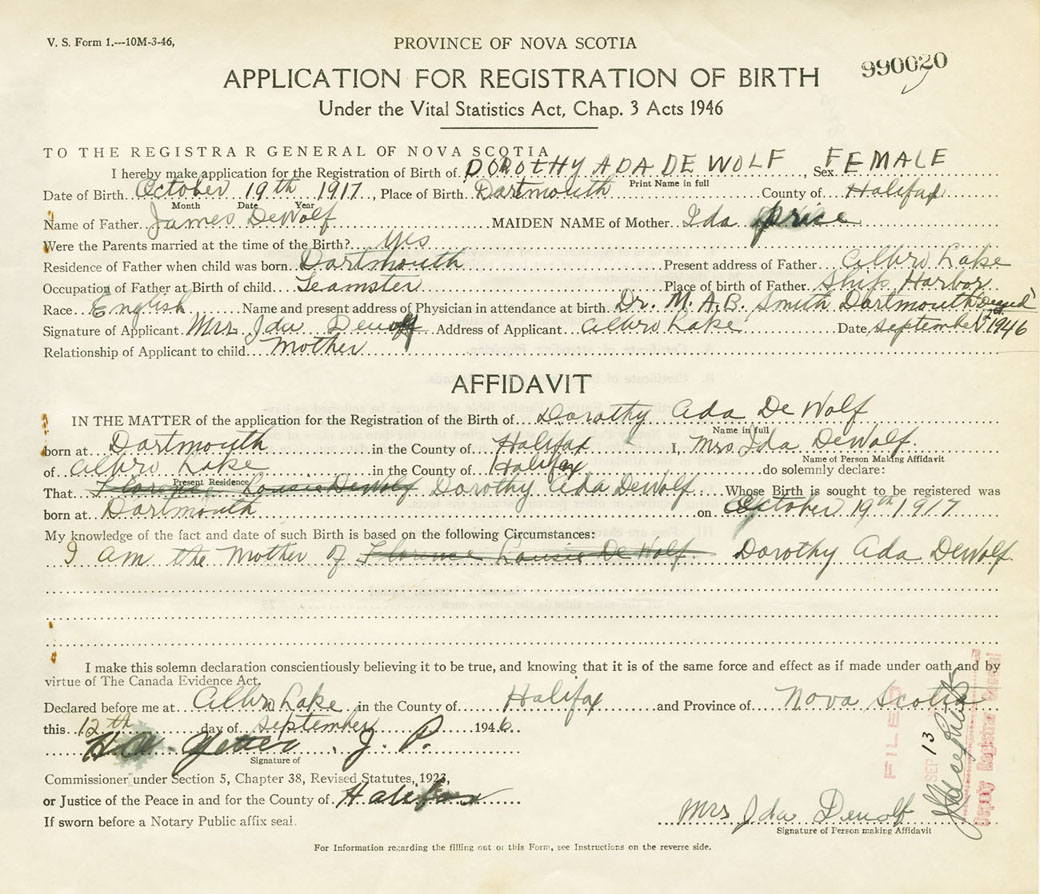 V. S. Form 1.---10M-3-46,
PROVINCE OF NOVA SCOTIA
990020
APPLICATION FOR REGISTRATION OF BIRTH
Under the Vital Statistics Act, Chap. 3 Acts 1946
TO THE REGISTRAR GENERAL OF NOVA SCOTIA
I hereby make application for the Registration of Birth of DOROTHY ADA DE WOLF, Sex FEMALE
Print Name in full
Date of Birth October 19th 1917, Place of Birth Dartmouth County of Halifax
Month Date Year
Name of Father James DeWolf MAIDEN NAME of Mother Ida price
Were the Parents married at the time of the Birth? Yes
Residence of Father when child was born Dartmouth Present address of Father Albro Lake
Occupation of Father at Birth of child Teamster Place of birth of Father Ship Harbor
Race English Name and present address of Physician in attendance at birth Dr. M. A. B. Smith Dartmouth Decead
Signature of Applicant Mrs Ida Dewolf Address of Applicant Albro Lake Date September 1946
Relationship of Applicant to child Mother
AFFIDAVIT
IN THE MATTER of the application for the Registration of the Birth of Dorothy Ada De Wolf
Name in full
born at Dartmouth in the County of Halifax I, Mrs Ida DeWolf.
Name of Person Making Affidavit
of Albro Lake in the County of Halifax do solemnly declare:
Present Residence
That Florence Louise DeWolf Dorothy Ada DeWolf Whose Birth is sought to be registered was
born at Dartmouth on October 19th 1917
My knowledge of the fact and date of such Birth is based on the following Circumstances:
I am the Mother of Florence Louise De Wolf Dorothy Ada DeWolf
I make this solemn declaration conscientiously believing it to be true, and knowing that it is of the same force and effect as if made under oath and by
virtue of The Canada Evidence Act.
Declared before me at Albro Lake in the County of Halifax and Province of Nova Scotia
this 12th day of September 1946.
J. P.
Signature of
Commissioner under Section 5, Chapter 38, Revised Statutes, 1923,
or Justice of the Peace in and for the County of Halifax
If sworn before a Notary Public affix seal.
Mrs Ida Dewolf
Signature of Person making Affidavit
FILED
SEP 13
Deputy Registrar General
For Information regarding the filling out of this Form, see Instructions on the reverse side.